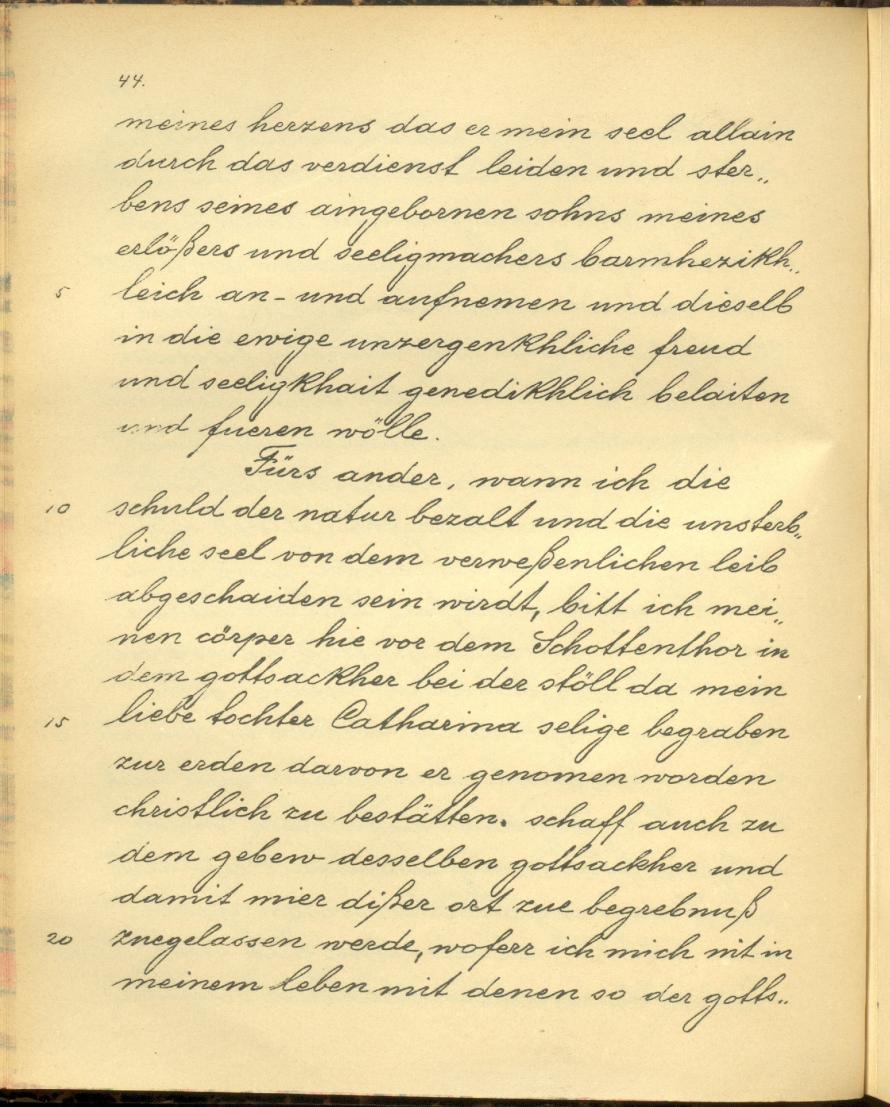 44.
meines herzens das er mein seel allain
durch das verdienst leiden und ster„
bens seines aingebornen sohns meines
erlößers und seeligmachers barmhezikh„
5 leich an- und aufnemen und dieselb
in die ewige unzergenkhliche freud
und seeligkhait genedikhlich belaiten
und fueren wölle.
Fürs ander, wann ich die
10 schuld der natur bezalt und die unsterb„
liche seel von dem verweßenlichen leib
abgeschaiden sein wirdt, bitt ich mei„
nen cörper hie vor dem Schottenthor in
dem gottsackher bei der stöll da mein
15 liebe tochter Catharina selige begraben
zur erden darvon er genomen worden
christlich zu bestätten. schaff auch zu
dem gebew desselben gottsackher und
damit mier dißer ort zue begrebnuß
20 zuegelassen werde, woferr ich mich nit in
meinem leben mit denen so der gotts„